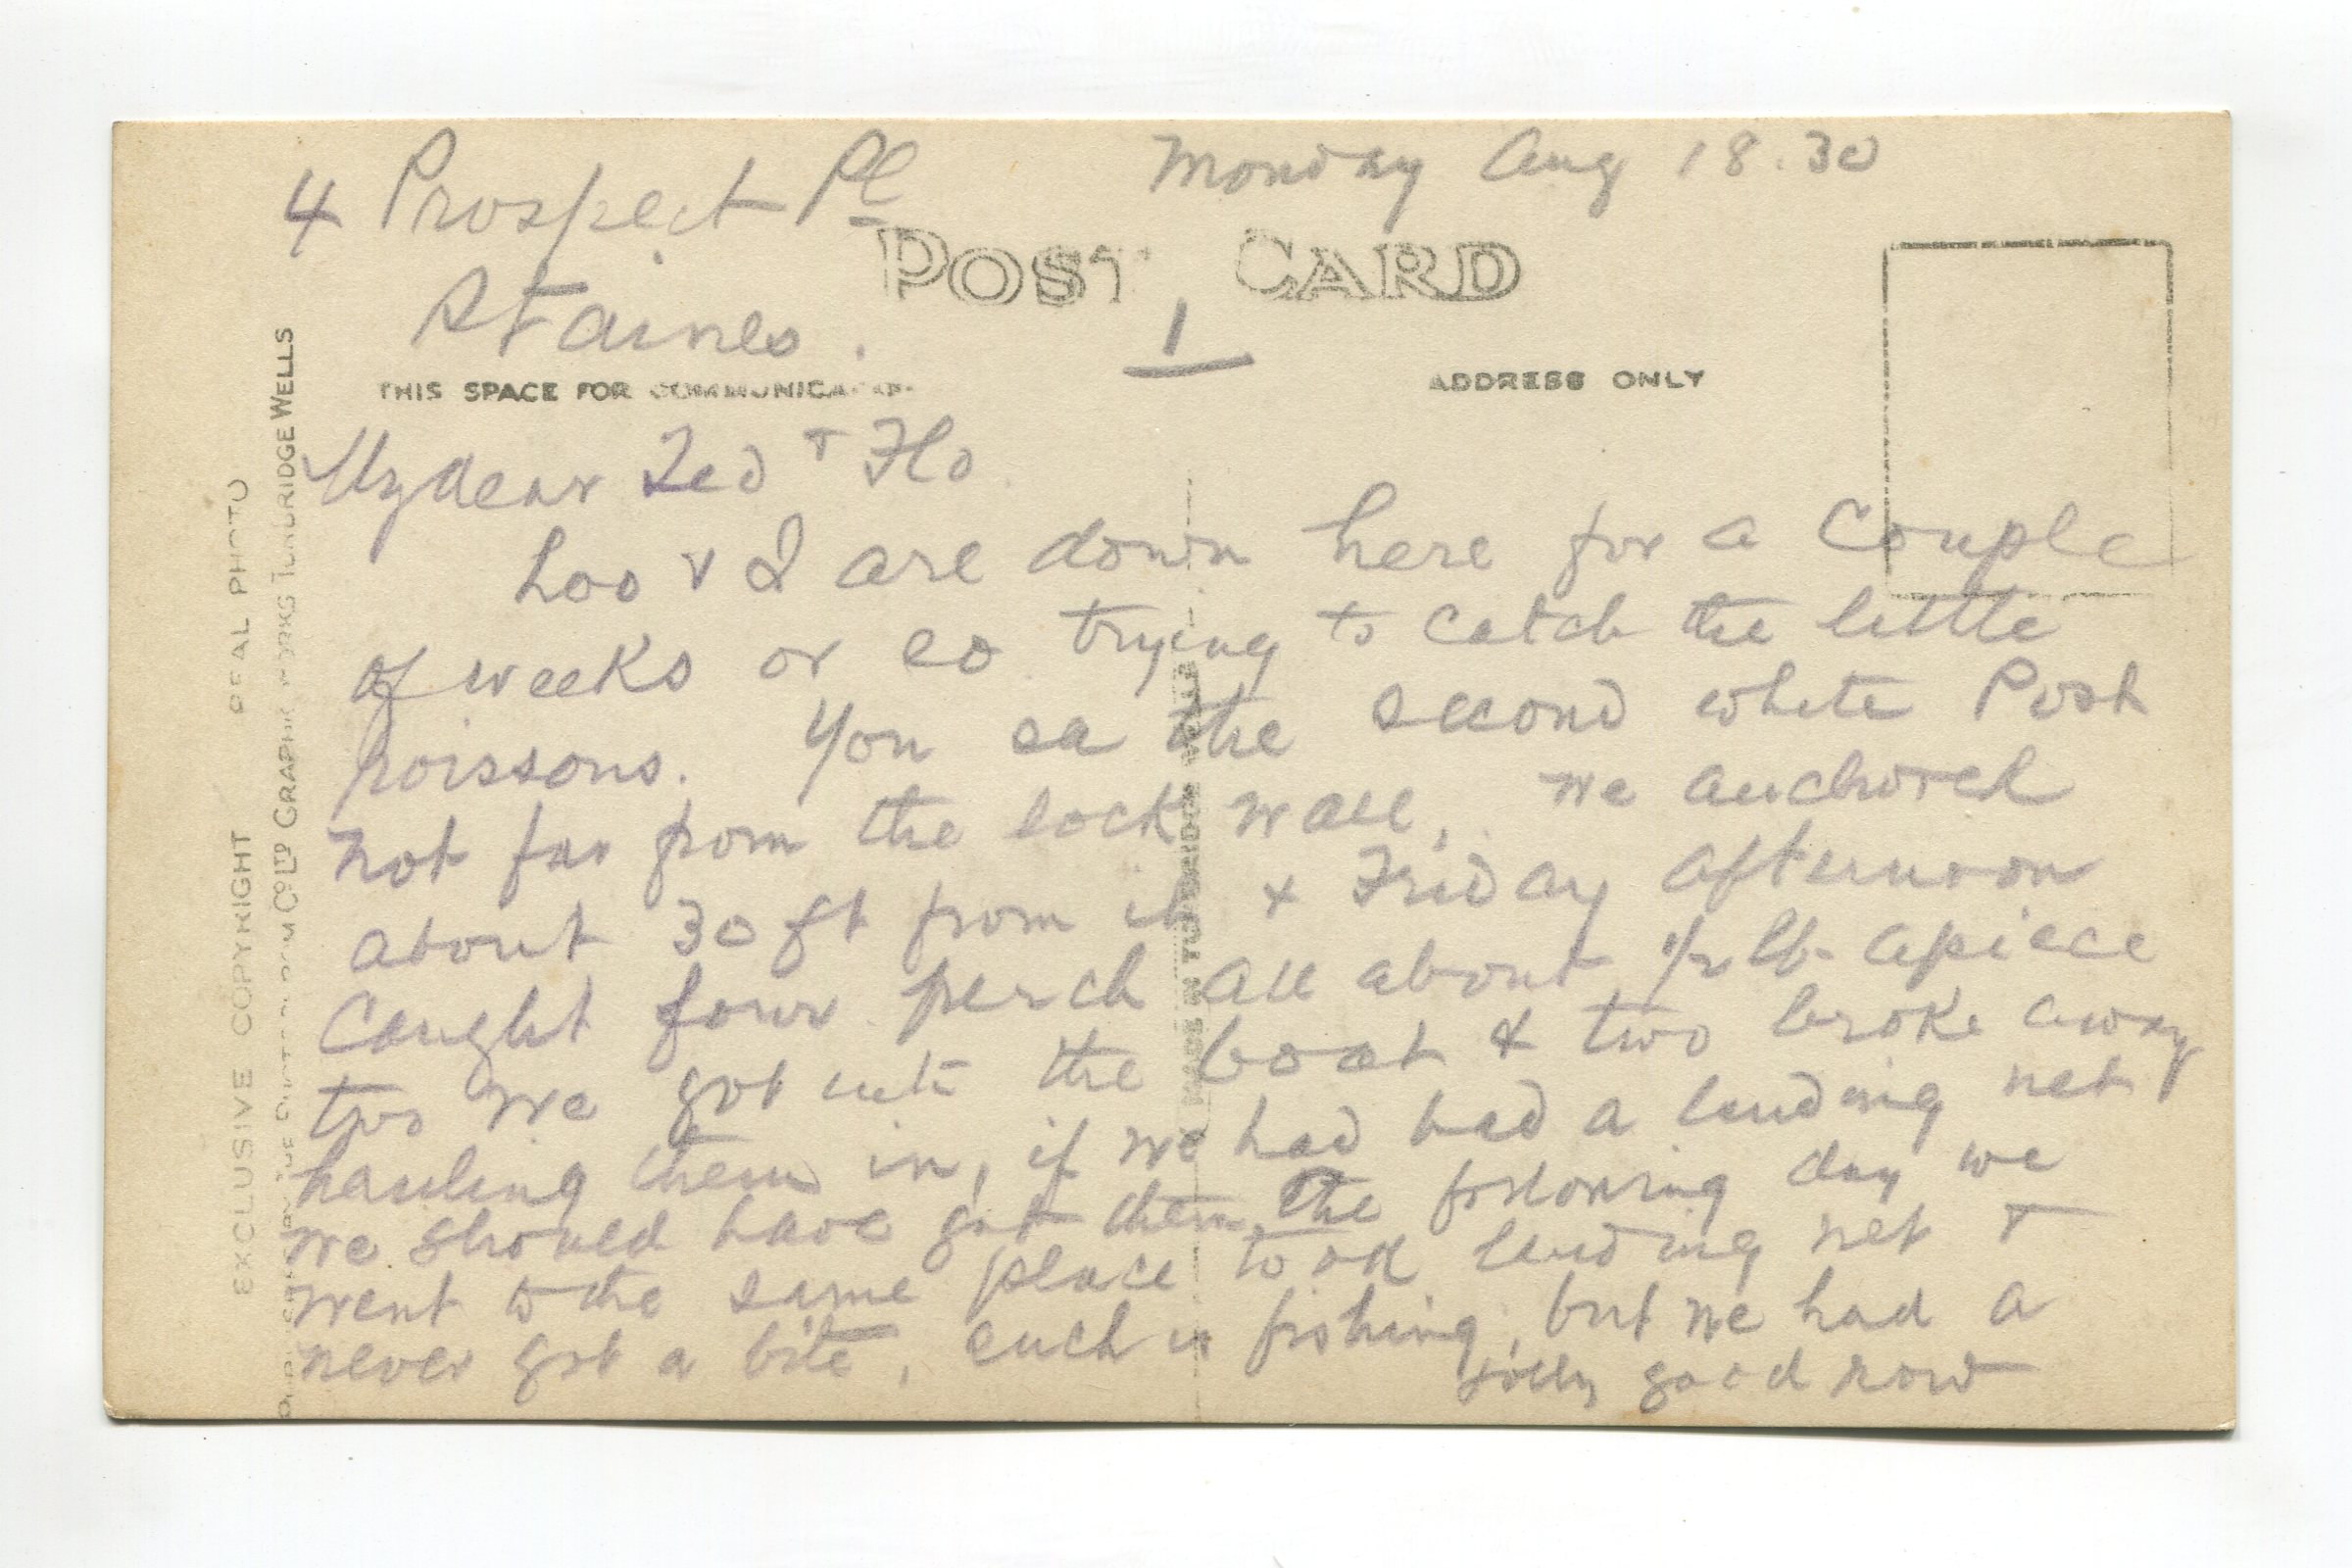 4 Prospect Pl
Monday Aug 18.30
Staines.
POST CARD
1
THIS SPACE FOR COMMUNICATION
ADDRESS ONLY
My dear Ted & Flo
Loo & I are down here for a couple
of weeks or so trying to catch the little
poissons. You see the second white Post
not far from the lock wall, we anchored
about 30 ft from it & Friday afternoon
caught four perch all about 1/2 lb. apiece
two we got into the boat & two broke away
hauling them in, if we had had a landing net
we should have got them, the following day we
went to the same place took landing net &
never got a bite, such is fishing, but we had a
jolly good row
EXCLUSIVE COPYRIGHT REAL PHOTO
CO LTD GRAPHIC WORKS TUNBRIDGE WELLS
MADE IN TUNBRIDGE WELLS